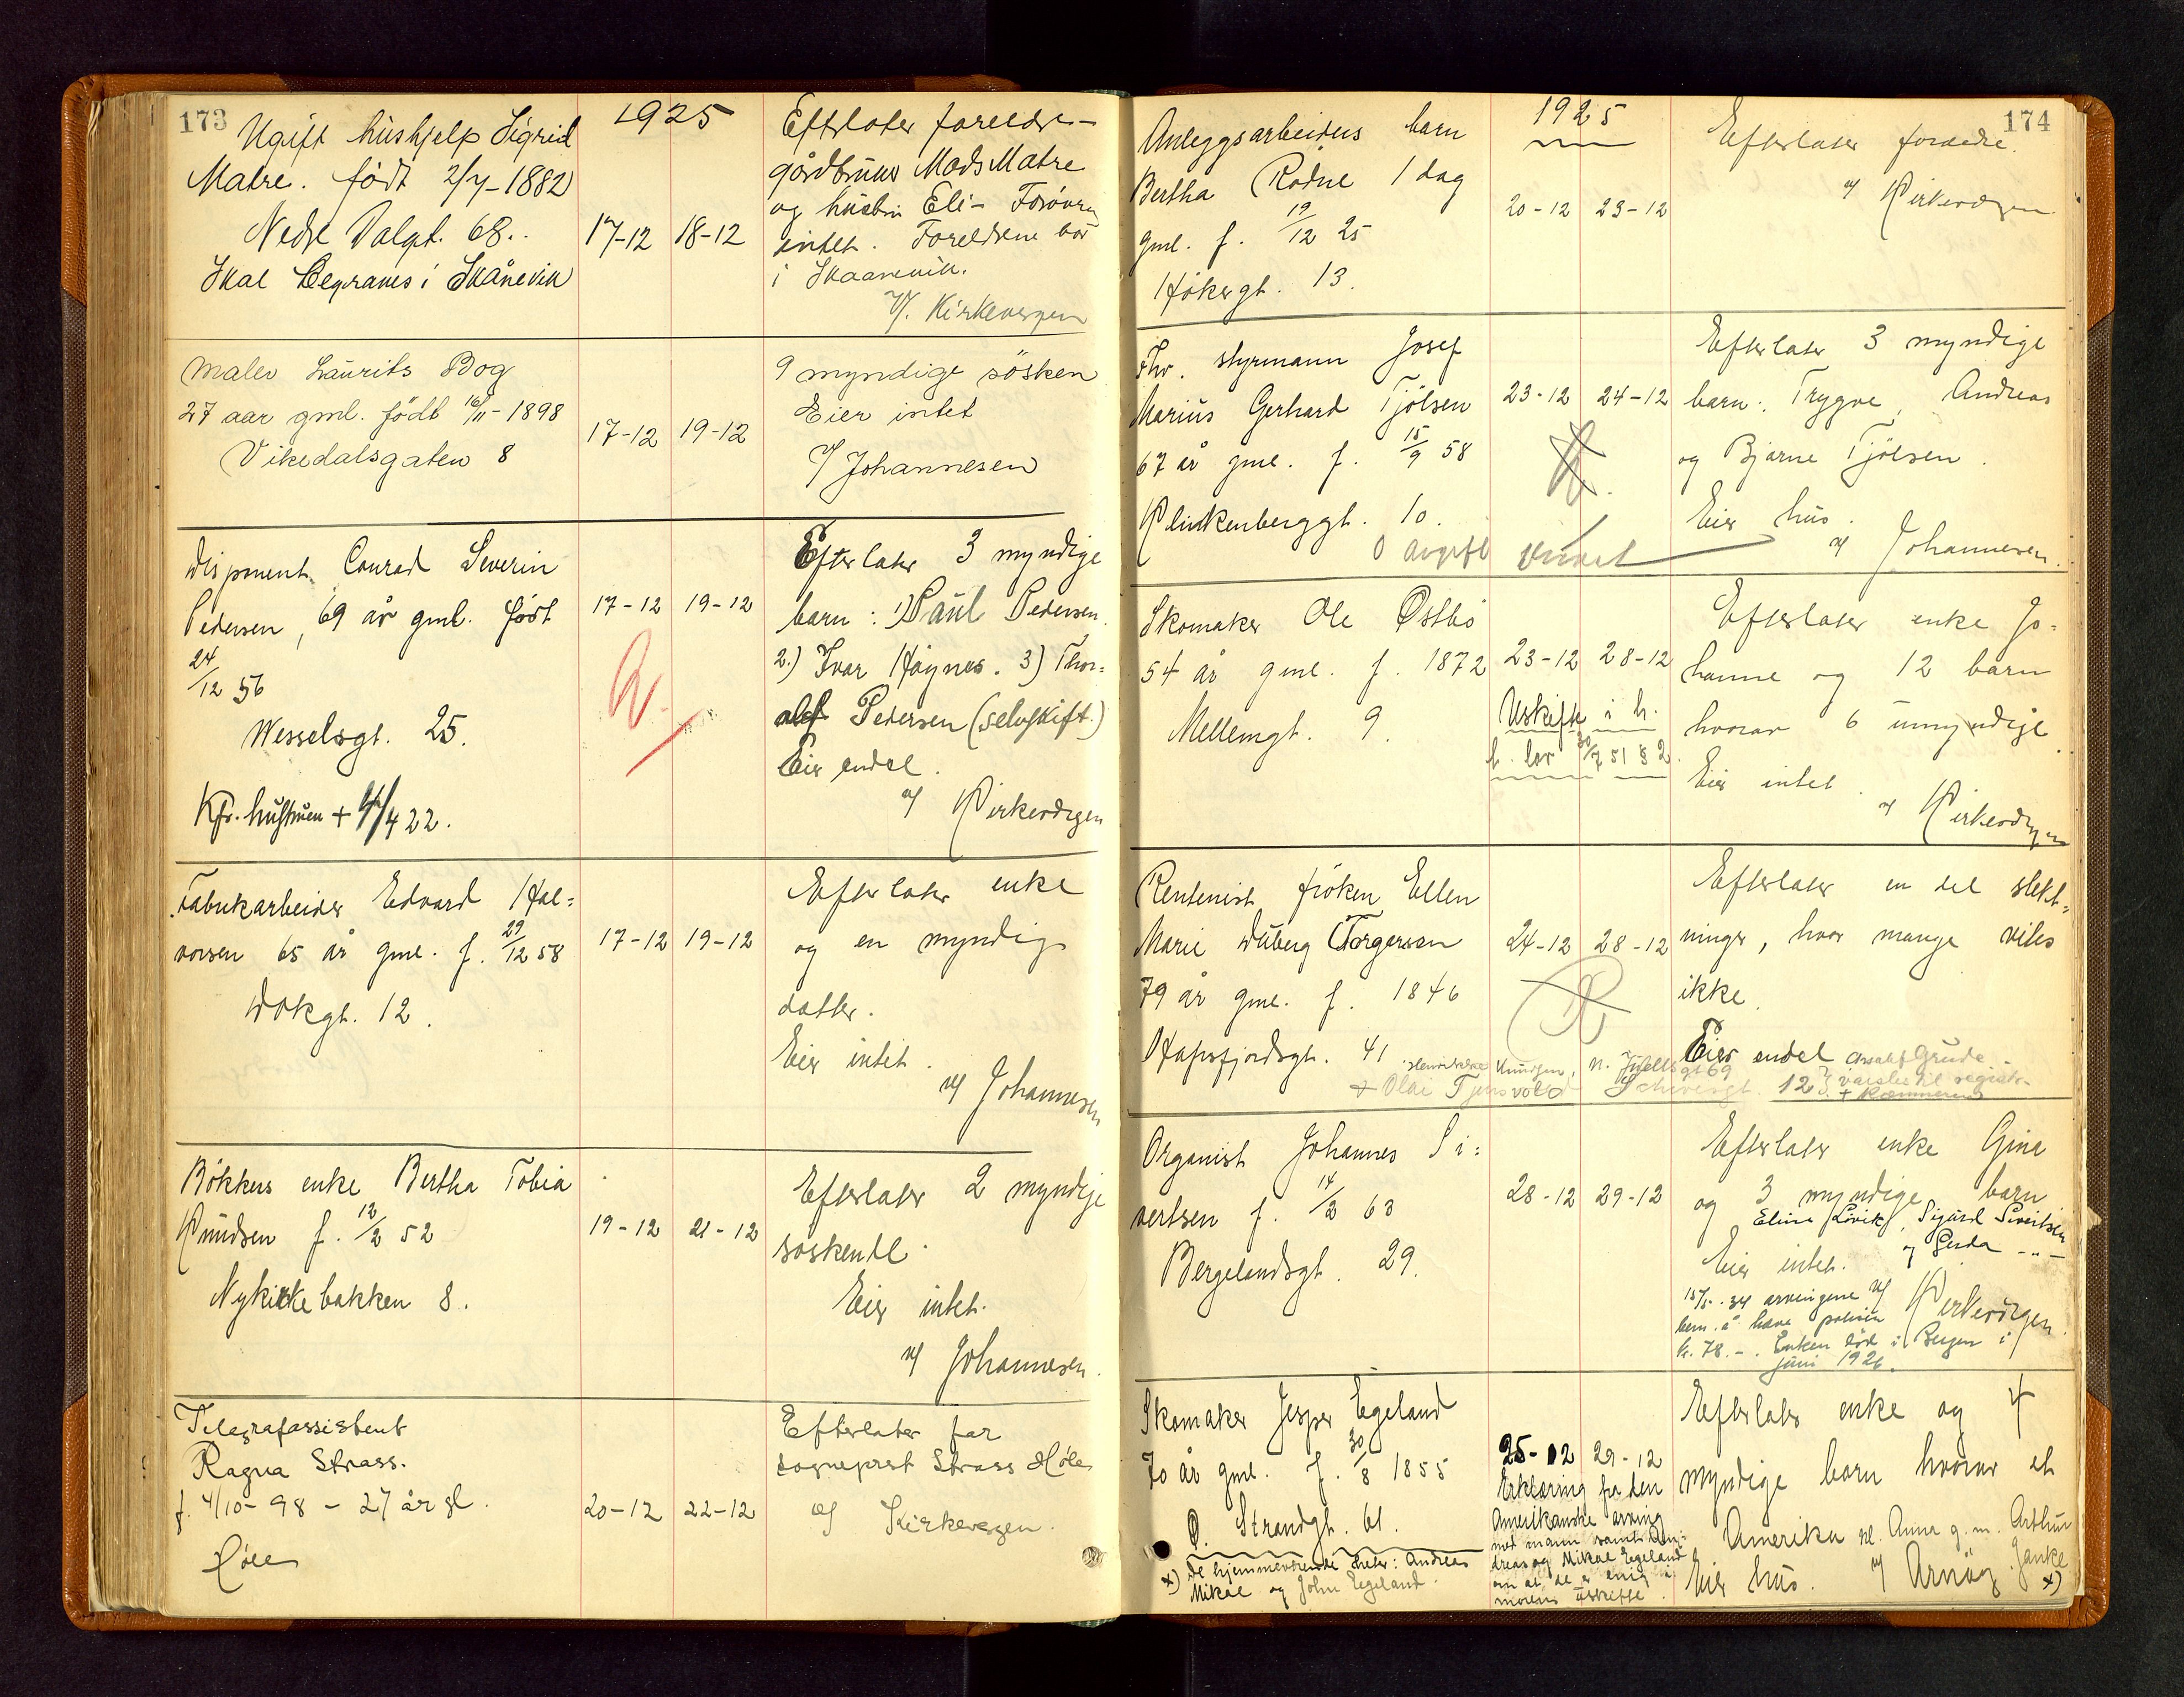 173
1925
Ugift hushjelp Sigrid
Matre. født 2/7-1882
Nedre Dalgt. 68.
Skal begraves i Skånevik
17-12 18-12
Efterlater foreldre-
gårdbruker Mads Matre
og hustru Eli- Forøvrig
intet. Foreldrene bor
i Skaanevik.
v/. Kirkevergen
Maler Laurits Bog
27 aar gml. født 16/11-1898
Vikedalsgaten 8
17-12 19-12
9 myndige søsken
Eier intet
v/ Johannesen
Disponent Conrad Severin
Pedersen, 69 år gml. født
24/12 56
Wesselsgt. 25.
Kfr. hustruen + 4/4 22.
17-12 19-12
Efterlater 3 myndige
barn: 1) Paul Pedersen
2.) Ivar Høynes. 3) Thor=
alf Pedersen (selvskift.)
Eier endel.
v/ Kirkevergen
Fabrikarbeider Edvard Hal=
vorsen 65 år gml. f. 29/12 58
Dokgt. 12.
17-12 19-12
Efterlater enke
og en myndig
datter.
Eier intet.
v/ Johannesen
Bøkkers enke Bertha Tobia
Knudsen f. 12/2 52
Nykirkebakken 8.
19-12 21-12
Efterlater 2 myndige
søskende.
Eier intet.
v/ Johannesen.
Telegrafassistent
Ragna Strass.
f. 4/10-98 - 27 år gl.
Høle
20-12 22-12
Efterlater far
sogneprest Strass Høle
v/ Kirkevergen.
174
1925
Anleggsarbeiders barn
Bertha Rødne 1 dag
gml. f. 19/12 25
Høkergt. 13.
20-12 23-12
Efterlater foreldre.
v/ Kirkevergen
Fhv. styrmann Josef
Marius Gerhard Tjölsen
67 år gml. f. 15/9 58
Klinkenberggt. 10.
0 avgift
23-12 24-12
Efterlater 3 myndige
barn: Trygve, Andreas
og Bjarne Tjölsen.
Eier hus.
v/ Johannesen.
Skomaker Ole Østbø
54 år gml. f. 1872
Mellemgt. 9.
23-12 28-12
Uskifte i h.
t. lov 30/7 51 § 2.
Efterlater enke Jo=
hanne og 12 barn
hvorav 6 umyndige.
Eier intet.
v/ Kirkevergen
Rentenist frøken Ellen
Marie Duberg Torgersen
79 år gml. f. 1846
Hafrsfjordsgt. 41
24-12 28-12
Efterlater en del slekt=
ninger, hvor mange vites
ikke.
Eier endel
Knudsen, N.
+ Olai Tjensvold
Organist Johannes Si=
vertsen f. 14/2 63
Bergelandsgt. 29.
28-12 29-12
Efterlater enke Gina
og 3 myndige barn
Elina Løvik, Sigurd Sivertsen
og Gerda -"-
Eier intet.
v/ Kirkevergen.
15/5.34 arvingene
bem. å have polisen
kr. 78.-. Enken død i Bergen i
juni 1926.
Skomaker Jesper Egeland
70 år gml. f. 30/8 1855
Ø. Strandgt. 61.
x) De hjemmeværende heter: Andreas
Mikal og John Egeland.
25-12 29-12
Erklæring fra den
Amerikanske arving
med mann samt An=
dreas og Mikal Egeland
om at de er enig i
morens uskifte.
Efterlater enke og 4
myndige barn hvorav et
Amerika nl. Anna g.m. Arthur
Janke x)
Eier hus. v/ Arnøy